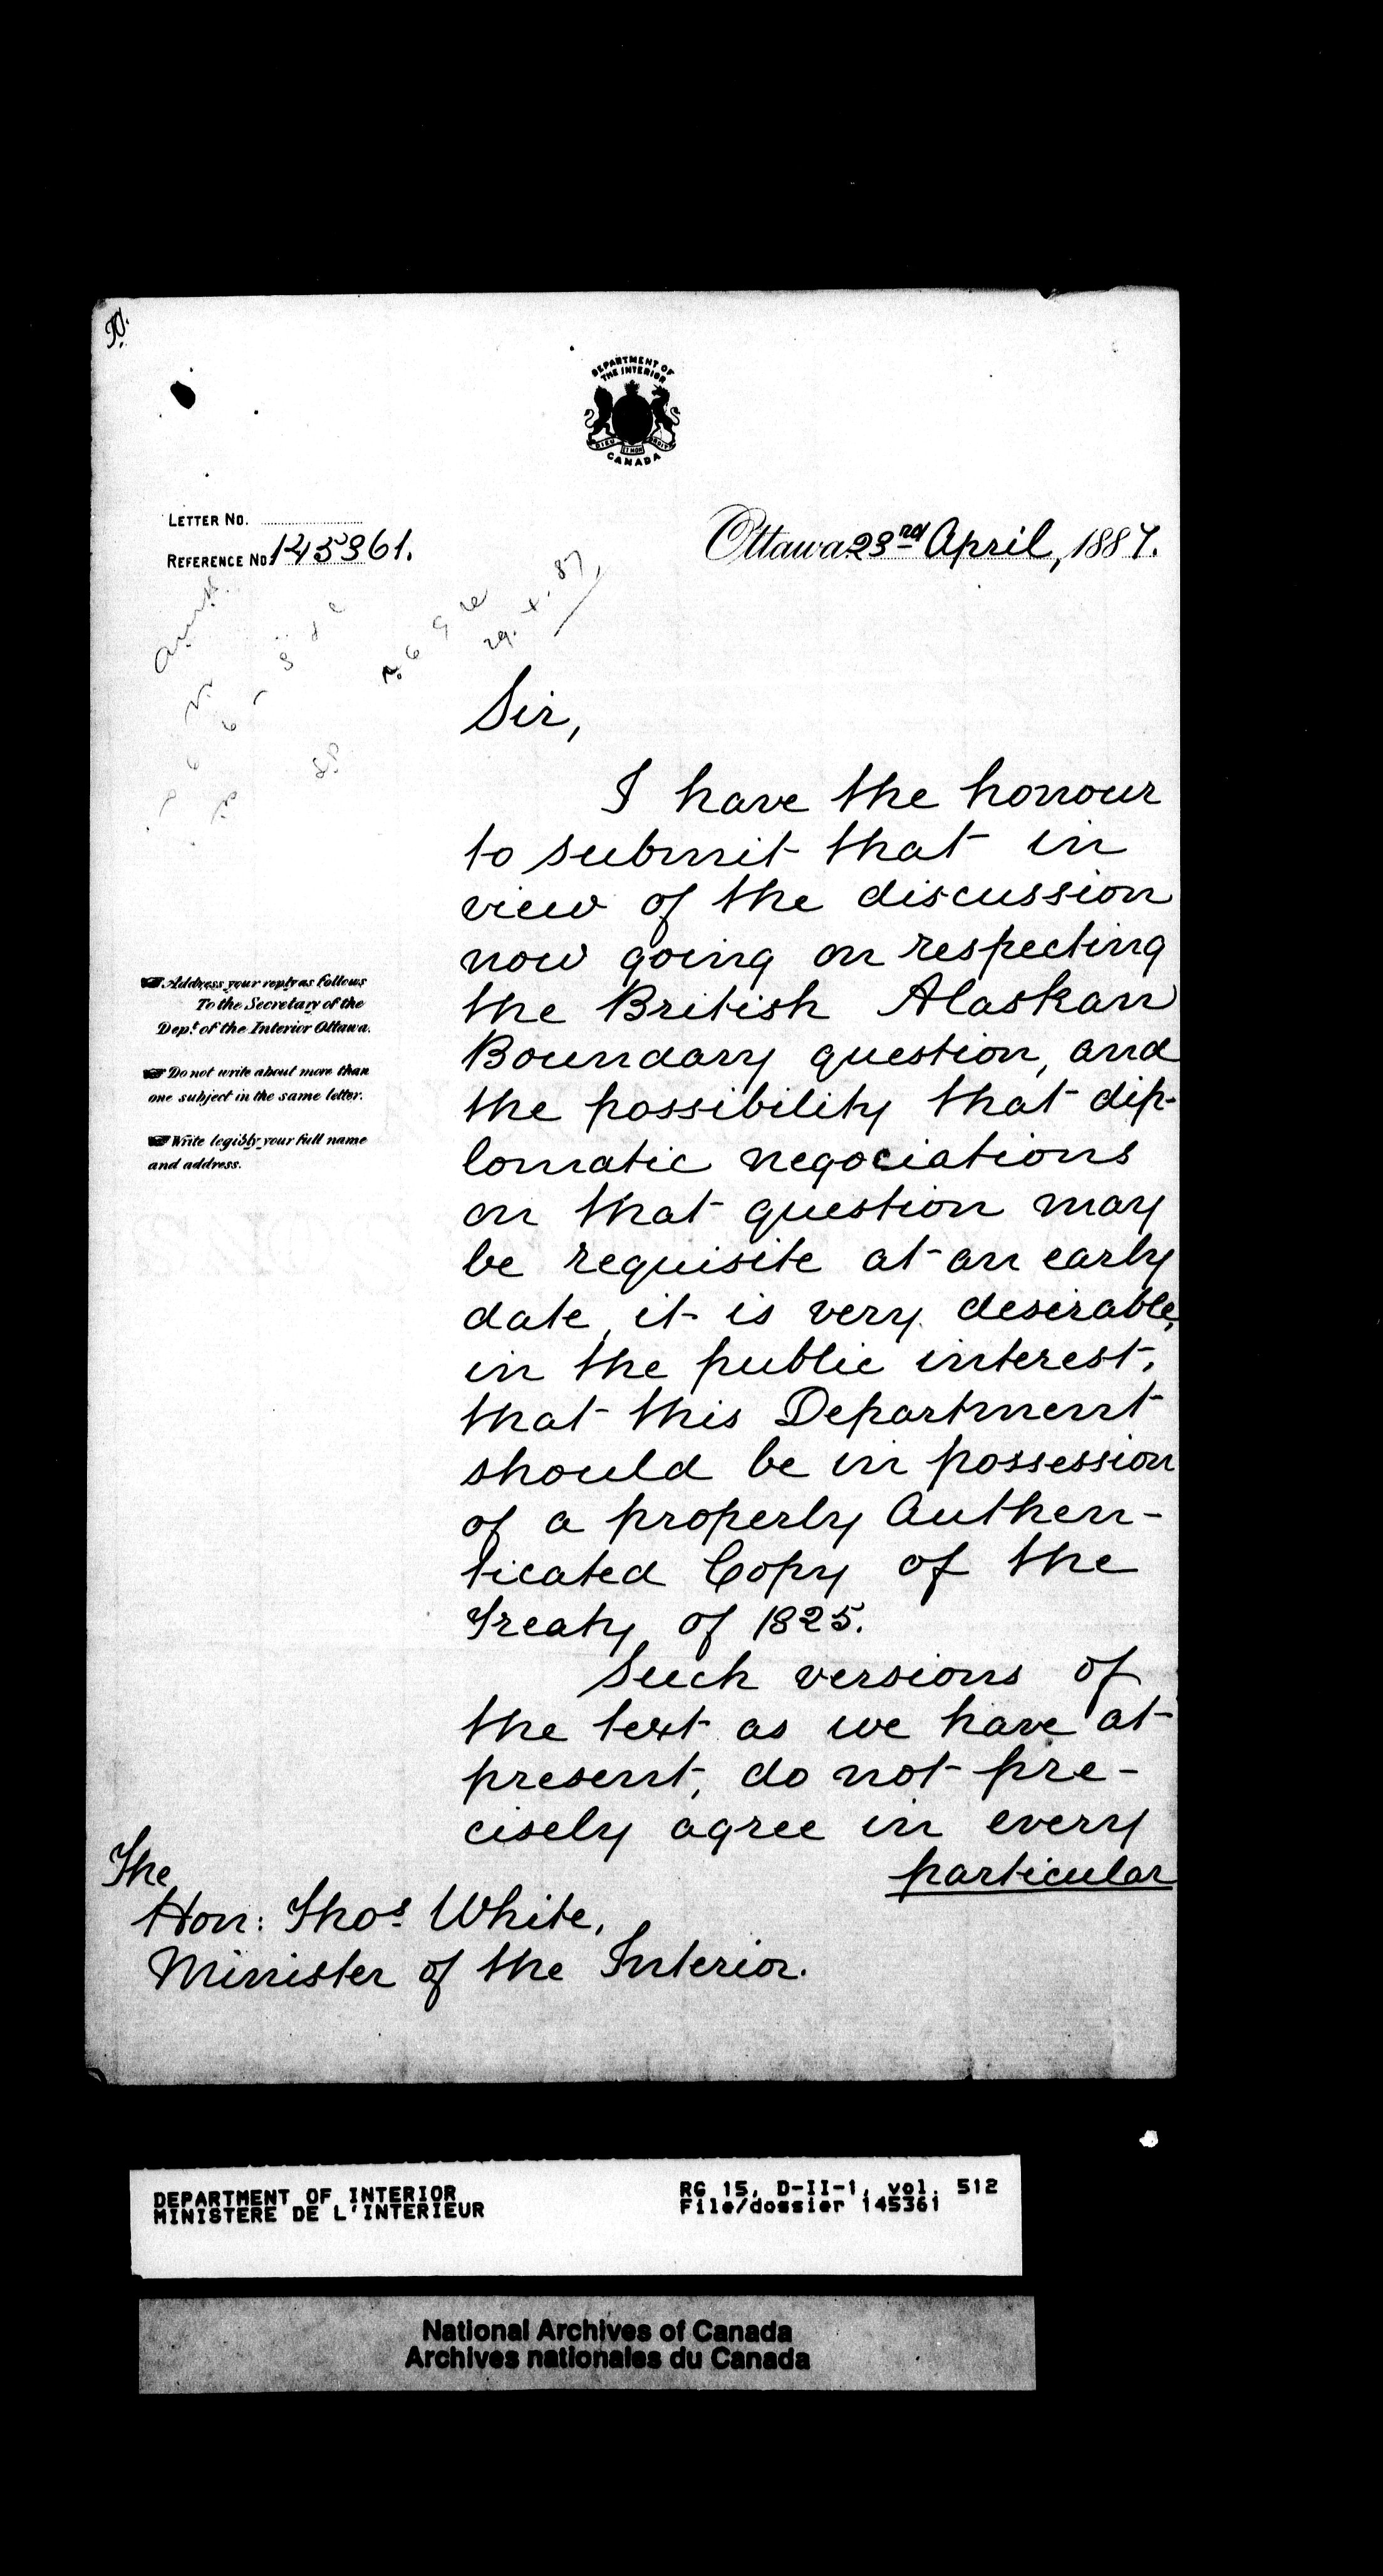 DEPARTMENT OF
THE INTERIOR
DIEU ET MON DROIT
CANADA
LETTER NO.
REFERENCE NO. 145361.
Ottawa 23rd April, 1887.
29. 4. 87
Sir,
I have the honour
to submit that in
view of the discussion
now going on respecting
the British Alaskan
Boundary question, and
the possibility that dip-
lomatic negociations
on that question may
be requisite at an early
date, it is very desirable,
in the public interest,
that this Department
should be in possession
of a properly Authen-
ticated Copy of the
Treaty of 1825.
Such versions of
the text as we have at
present, do not pre-
cisely agree in every
particular
Address your reply as follows
To the Secretary of the
Dept. of the Interior Ottawa.
Do not write about more than
one subject in the same letter.
Write legibly your full name
and address.
The
Hon: Thos. White,
Minister of the Interior.
DEPARTMENT OF INTERIOR
MINISTERE DE L'INTERIEUR
RG 15, D-II-1, vol. 512
File/dossier 145361
National Archives of Canada
Archives nationales du Canada